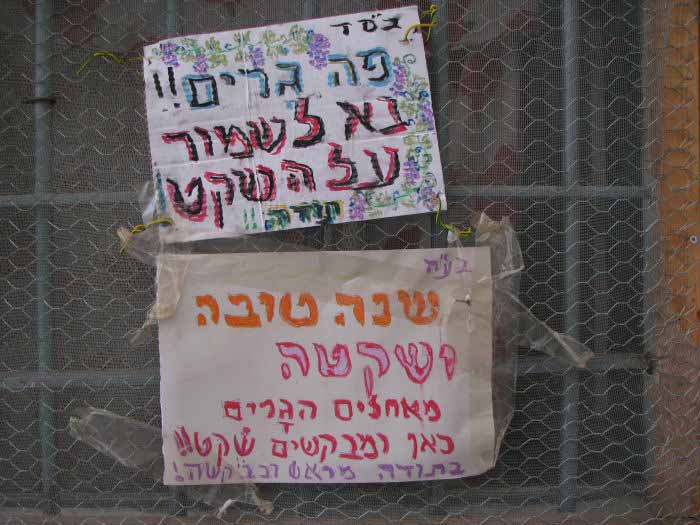 בס"ד
פה גָרים!!
נא לשמור
על השקט!
תודה!!
בע"ה
שנה טובה
ושקטה
מאחלים הגָרים
כאן ומבקשים שֶקט!!
בתודה מראש ובבקשה!